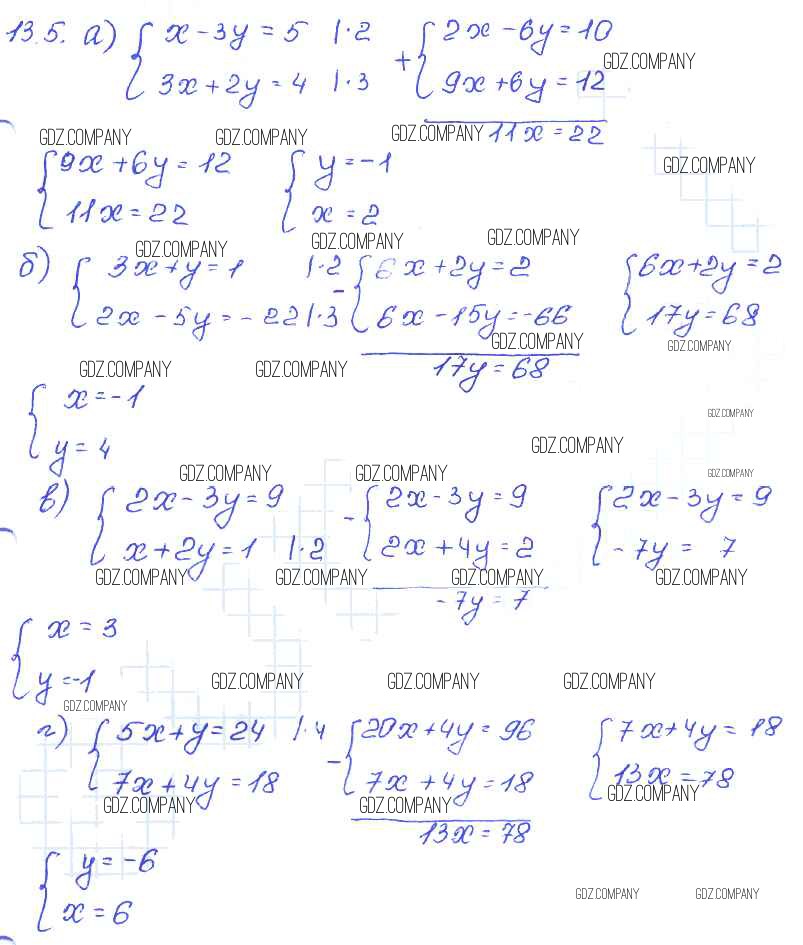 13.5. а) { x - 3y = 5 |·2 + { 2x - 6y = 10
3x + 2y = 4 |·3 9x + 6y = 12
GDZ.COMPANY
11x = 22
GDZ.COMPANY GDZ.COMPANY GDZ.COMPANY
{ 9x + 6y = 12 { y = -1
GDZ.COMPANY
11x = 22 x = 2
GDZ.COMPANY GDZ.COMPANY GDZ.COMPANY
б) { 3x + y = 1 |·2 - { 6x + 2y = 2 { 6x + 2y = 2
2x - 5y = -22 |·3 6x - 15y = -66 17y = 68
GDZ.COMPANY GDZ.COMPANY
17y = 68
GDZ.COMPANY GDZ.COMPANY
{ x = -1
GDZ.COMPANY
y = 4
GDZ.COMPANY
GDZ.COMPANY GDZ.COMPANY GDZ.COMPANY
в) { 2x - 3y = 9 - { 2x - 3y = 9 { 2x - 3y = 9
x + 2y = 1 |·2 2x + 4y = 2 -7y = 7
GDZ.COMPANY GDZ.COMPANY GDZ.COMPANY GDZ.COMPANY
-7y = 7
{ x = 3
y = -1
GDZ.COMPANY GDZ.COMPANY GDZ.COMPANY
GDZ.COMPANY
г) { 5x + y = 24 |·4 - { 20x + 4y = 96 { 7x + 4y = 18
7x + 4y = 18 7x + 4y = 18 13x = 78
GDZ.COMPANY GDZ.COMPANY GDZ.COMPANY
13x = 78
{ y = -6
x = 6
GDZ.COMPANY GDZ.COMPANY